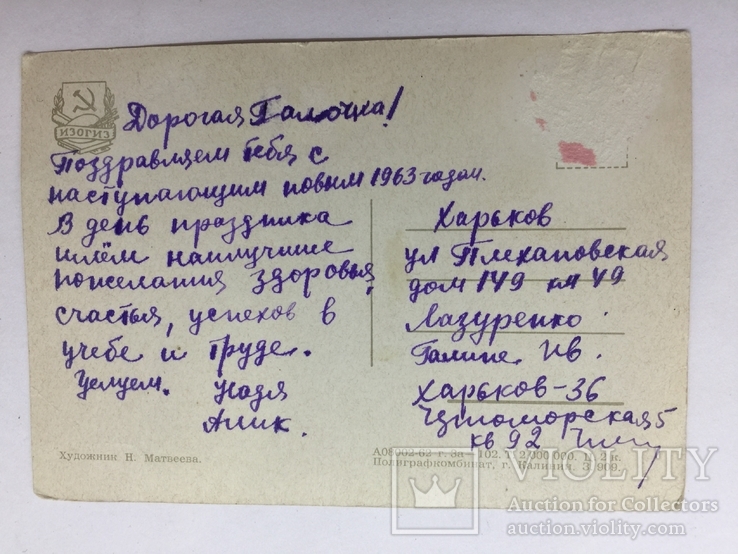 ИЗОГИЗ
Дорогая Галочка!
Поздравляем тебя с
наступающим новым 1963 годом.
В день праздника
шлём наилучшие
пожелания здоровья,
счастья, успехов в
учебе и труде.
Целуем. Надя
Алик.
Художник Н. Матвеева.
Харьков
ул Плехановская
дом 149 кв 49
Лазуренко
Галине Ив.
Харьков-36
Черноморская 5
кв 92
А08002-62 г. За - 102. Т 2 000 000. Ц. 2 к.
Полиграфкомбинат, г. Калинин. З. 909.
VIOLITY
Auction for Collectors
auction.violity.com